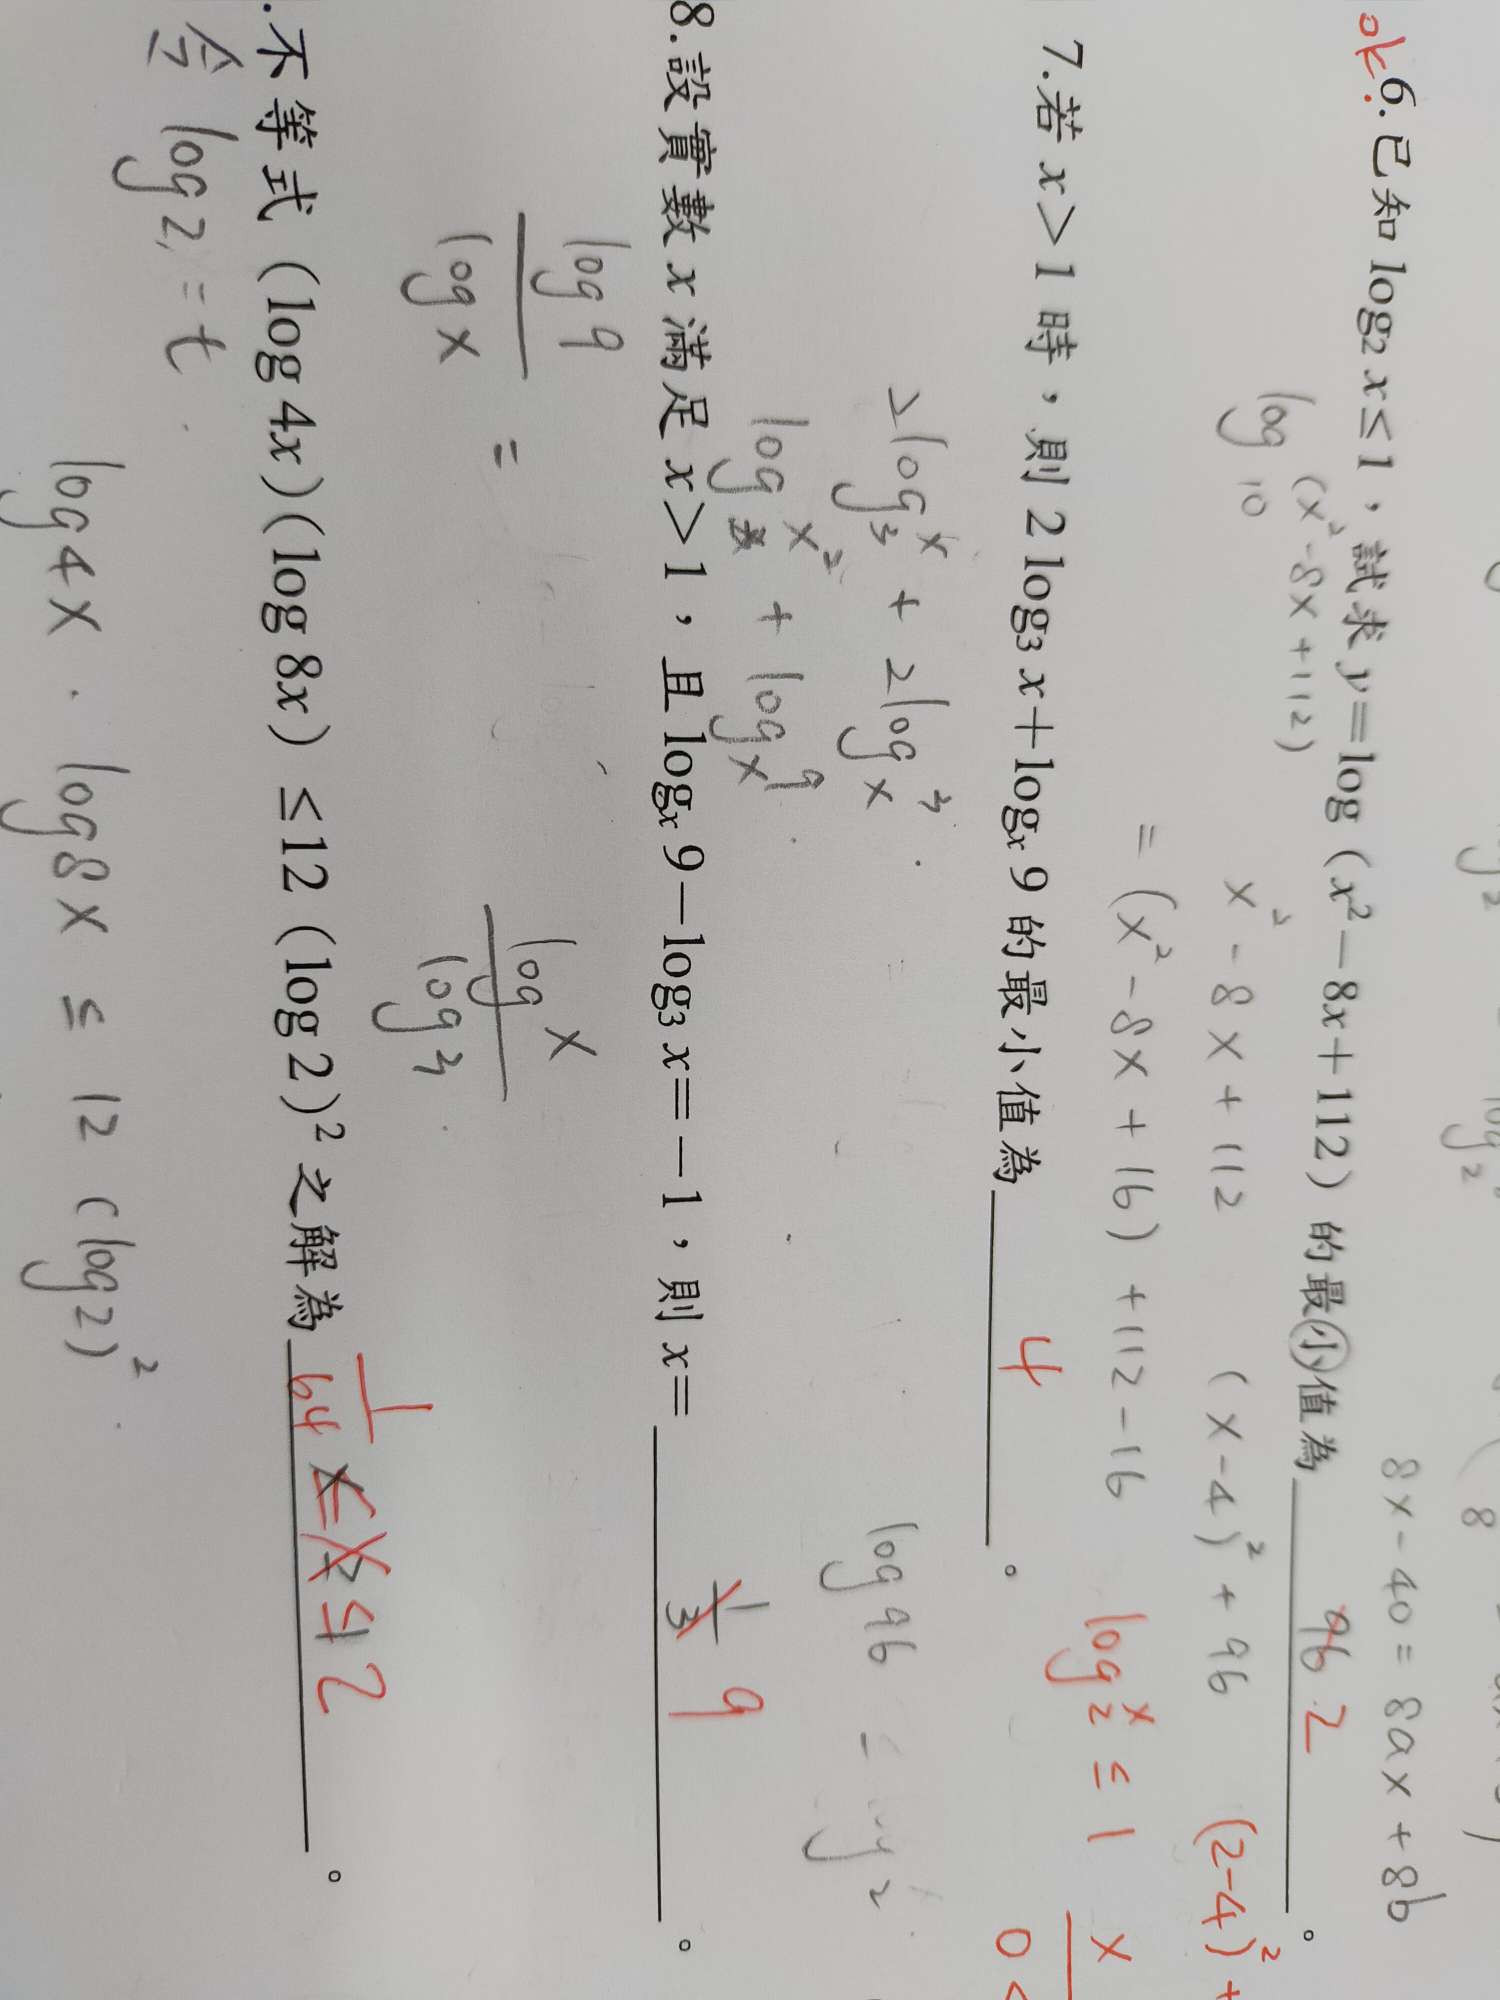 8x-40=8ax+8b
ok. 6.已知 log₂ x≤1，試求 y=log（x²－8x＋112）的最小值為 96 2 。
log₁₀ (x²-8x+112)
x²-8x+112
(x-4)²+96
(2-4)²+
=(x²-8x+16)+112-16
log₂ˣ ≤ 1
x
7.若 x＞1 時，則 2 log₃ x＋logₓ 9 的最小值為 4 。
2log₃ˣ + 2logₓ³
log x² + logₓ⁹
log 96 =
8.設實數 x 滿足 x＞1，且 logₓ 9－log₃ x＝－1，則 x＝ 1/3 9 。
log9/logx =
logx/log3
.不等式（log 4x）（log 8x）≤12（log 2）² 之解為 1/64 ≤x≤ 2 。
令 log2=t
log4x · log8x ≤ 12 (log2)²